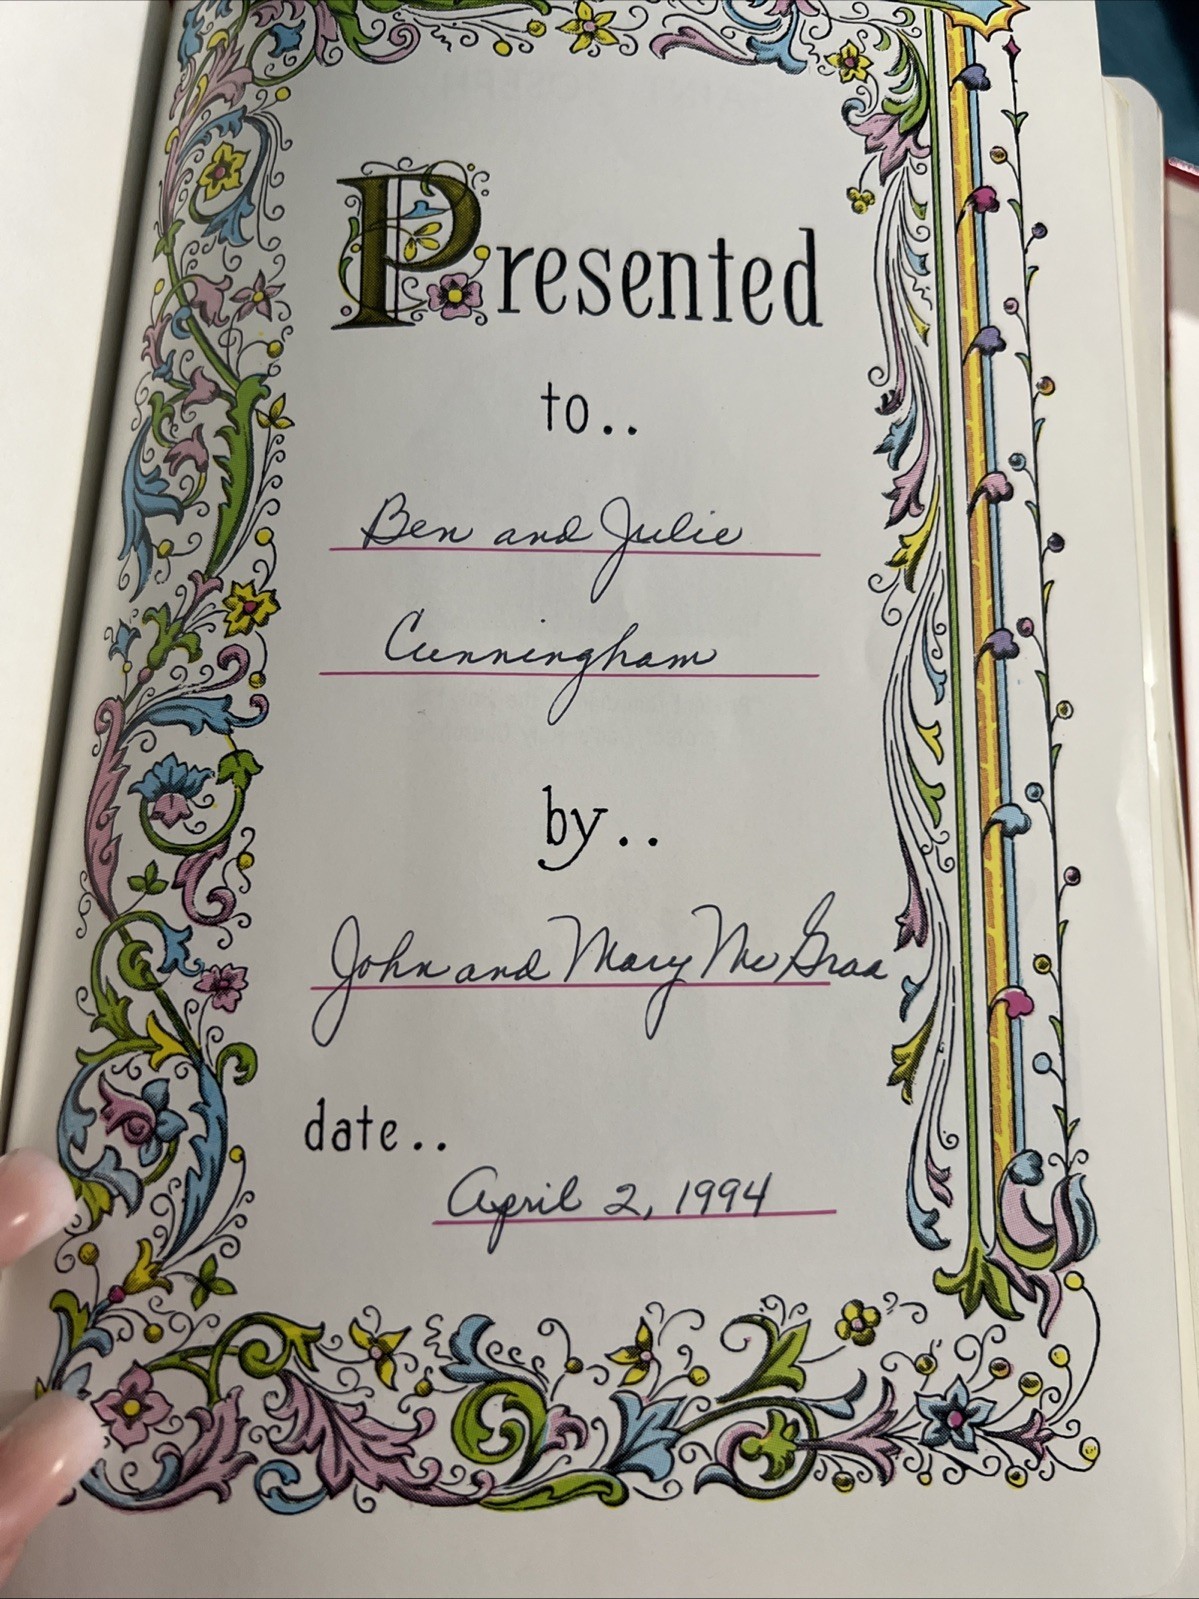 Presented
to..
Ben and Julie
Cunningham
by..
John and Mary McGraa
date..
April 2, 1994